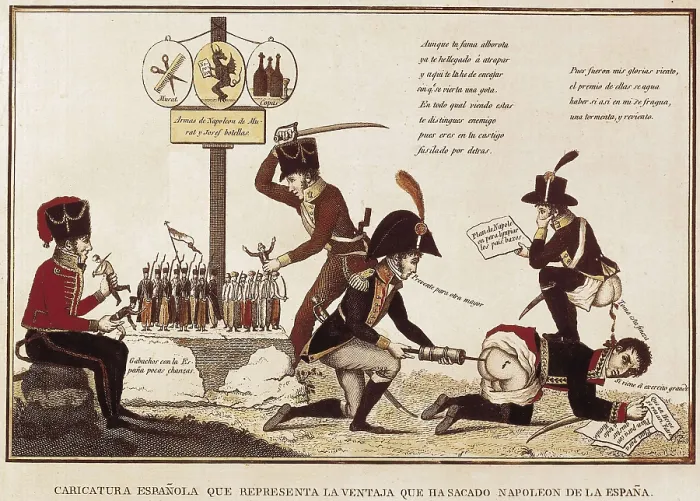 Murat
Copas
Armas de Napoleon de Mu-
rat y Josef botellas.
Aunque tu fama alborota
ya te he llegado á atrapar
y aqui te la he de encajar
sin q.e se vierta una gota.
En todo qual viendo estas
te distingues enemigo
pues eres en tu castigo
fusilado por detras.
Pues fueron mis glorias viento,
el premio de ellas se agua
haber si asi en mi se fragua,
una tormenta, y reviento.
Plan de Napole
on para limpiar
los pais. baxos.
Prevente para otra mayor
Toma esta fuerte
Si viene á exercito grande
Gabachos con la Es-
paña pocas chanzas.
CARICATURA ESPAÑOLA QUE REPRESENTA LA VENTAJA QUE HA SACADO NAPOLEON DE LA ESPAÑA.